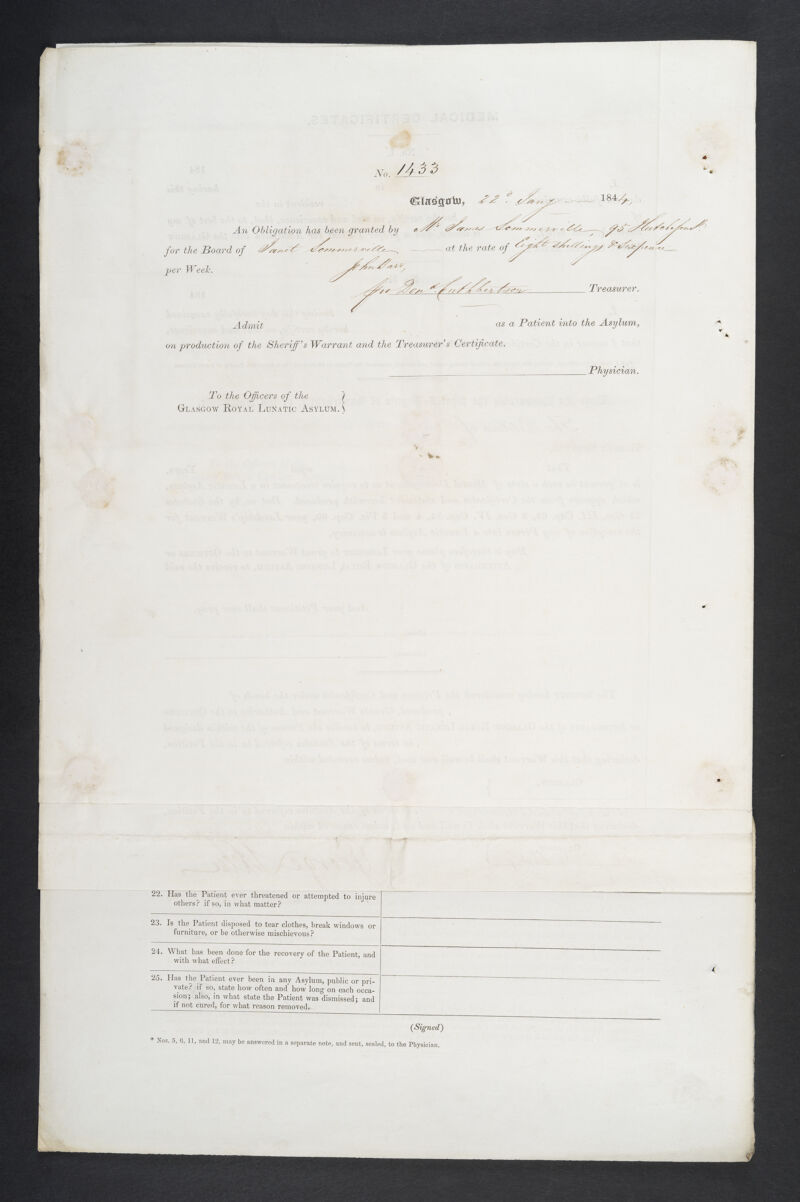 No. 1433
Glasgow, 22d. Jany 1844
An Obligation has been granted by Mr. James Sommerville, 95 Hutcheson St
for the Board of Janet Sommerville at the rate of Eight shillings & Sixpence
per Week.
John Barr,
pro Dond. Cuthbertson Treasurer.
Admit as a Patient into the Asylum,
on production of the Sheriff's Warrant and the Treasurer's Certificate.
Physician.
To the Officers of the
Glasgow Royal Lunatic Asylum.
22. Has the Patient ever threatened or attempted to injure
others? if so, in what matter?
23. Is the Patient disposed to tear clothes, break windows or
furniture, or be otherwise mischievous?
24. What has been done for the recovery of the Patient, and
with what effect?
25. Has the Patient ever been in any Asylum, public or pri-
vate? if so, state how often and how long on each occa-
sion; also, in what state the Patient was dismissed; and
if not cured, for what reason removed.
(Signed)
* Nos. 5, 6, 11, and 12, may be answered in a separate note, and sent, sealed, to the Physician.